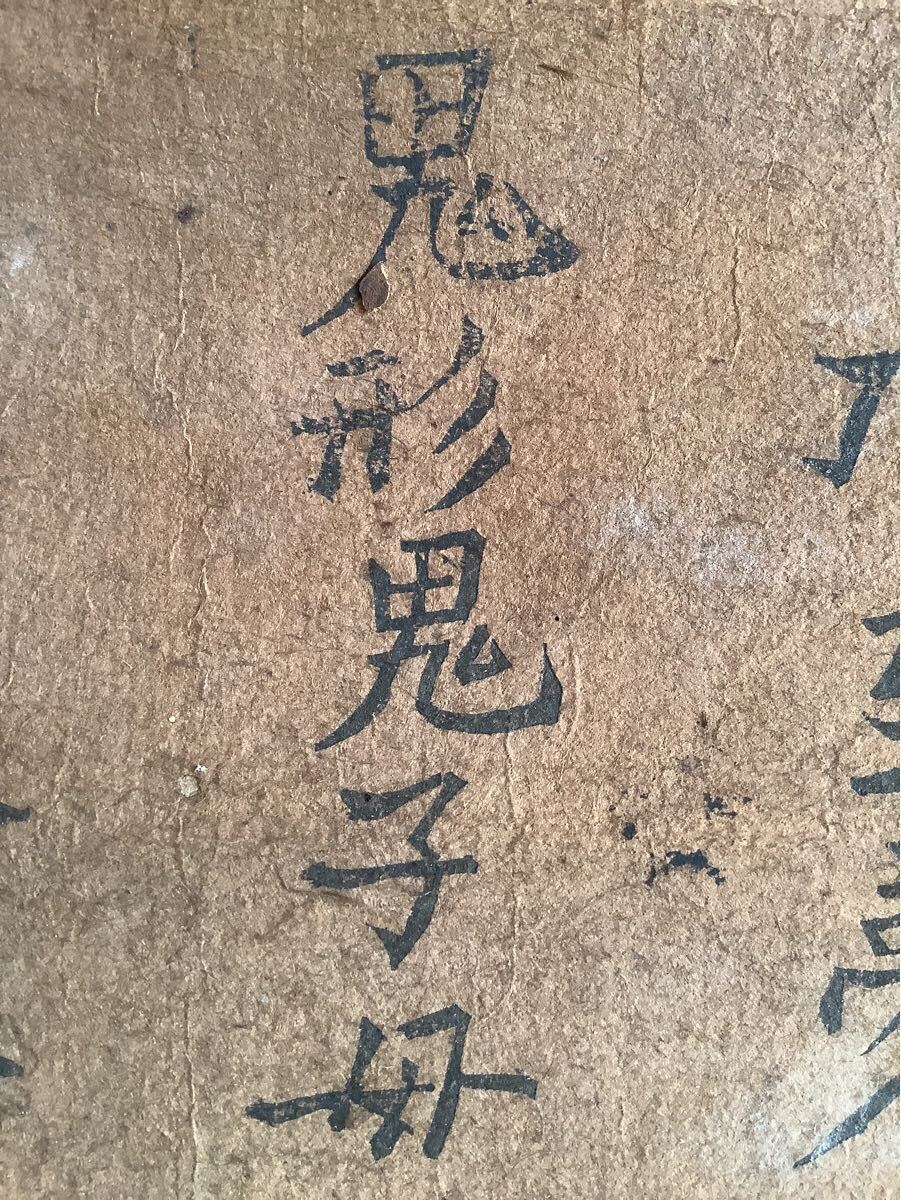 鬼形鬼子母